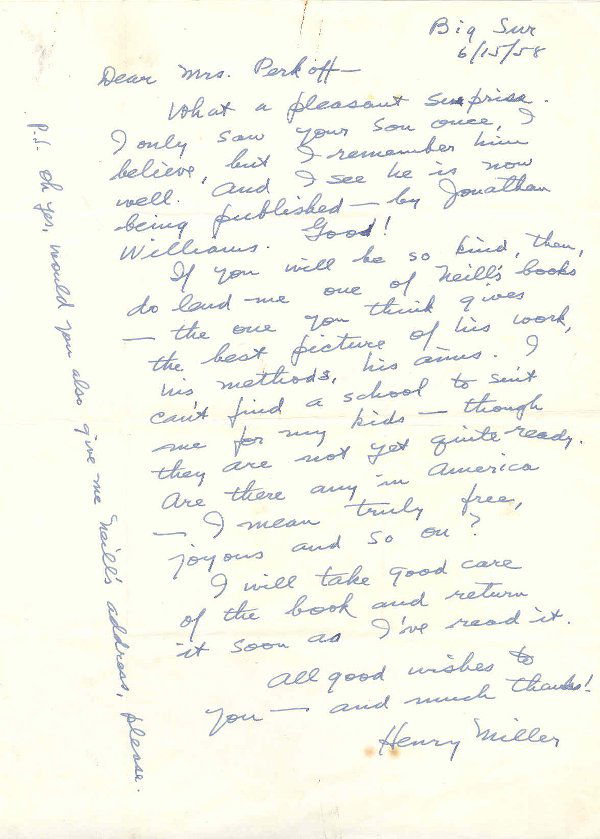 Big Sur
6/15/58
Dear Mrs. Perkoff —
What a pleasant surprise.
I only saw your son once, I
believe, but I remember him
well. And I see he is now
being published — by Jonathan
Williams. Good!
If you will be so kind, then,
do lend me one of Neill's books
— the one you think gives
the best picture of his work,
his methods, his aims. I
can't find a school to suit
me for my kids — though
they are not yet quite ready.
Are there any in America
— I mean truly free,
joyous and so on?
I will take good care
of the book and return
it soon as I've read it.
All good wishes to
you — and much thanks!
Henry Miller
P.S. Oh yes, would you also give me Neill's address, please.